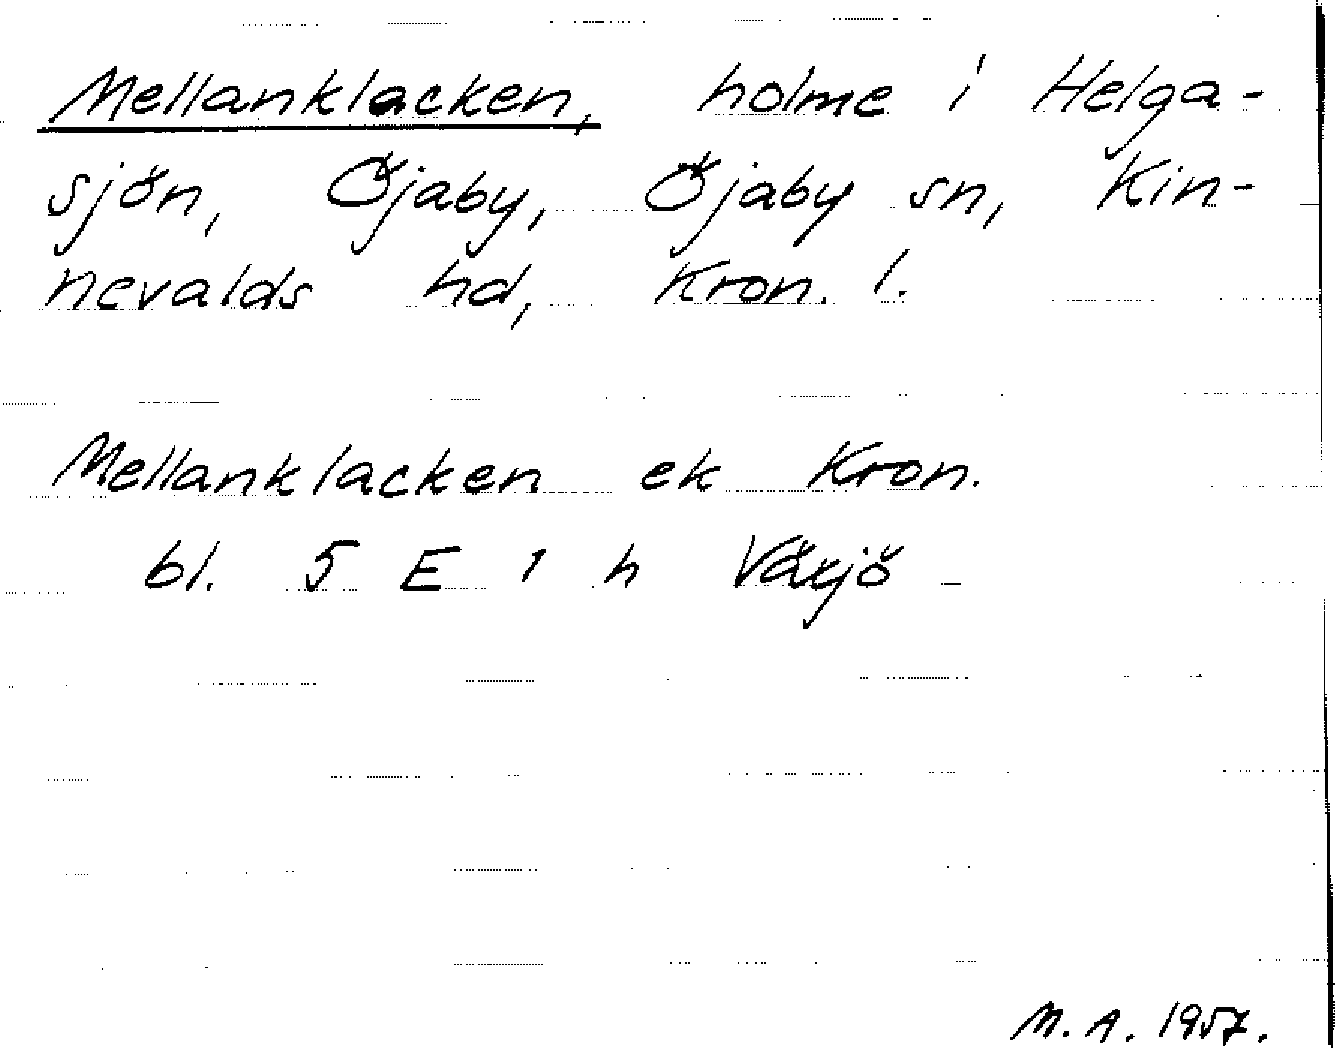 Mellanklacken, holme i Helga-
sjön, Öjaby, Öjaby sn, Kin-
nevalds hd, Kron. l.
Mellanklacken ek Kron.
bl. 5 E 1 h Växjö
M. A. 1957.